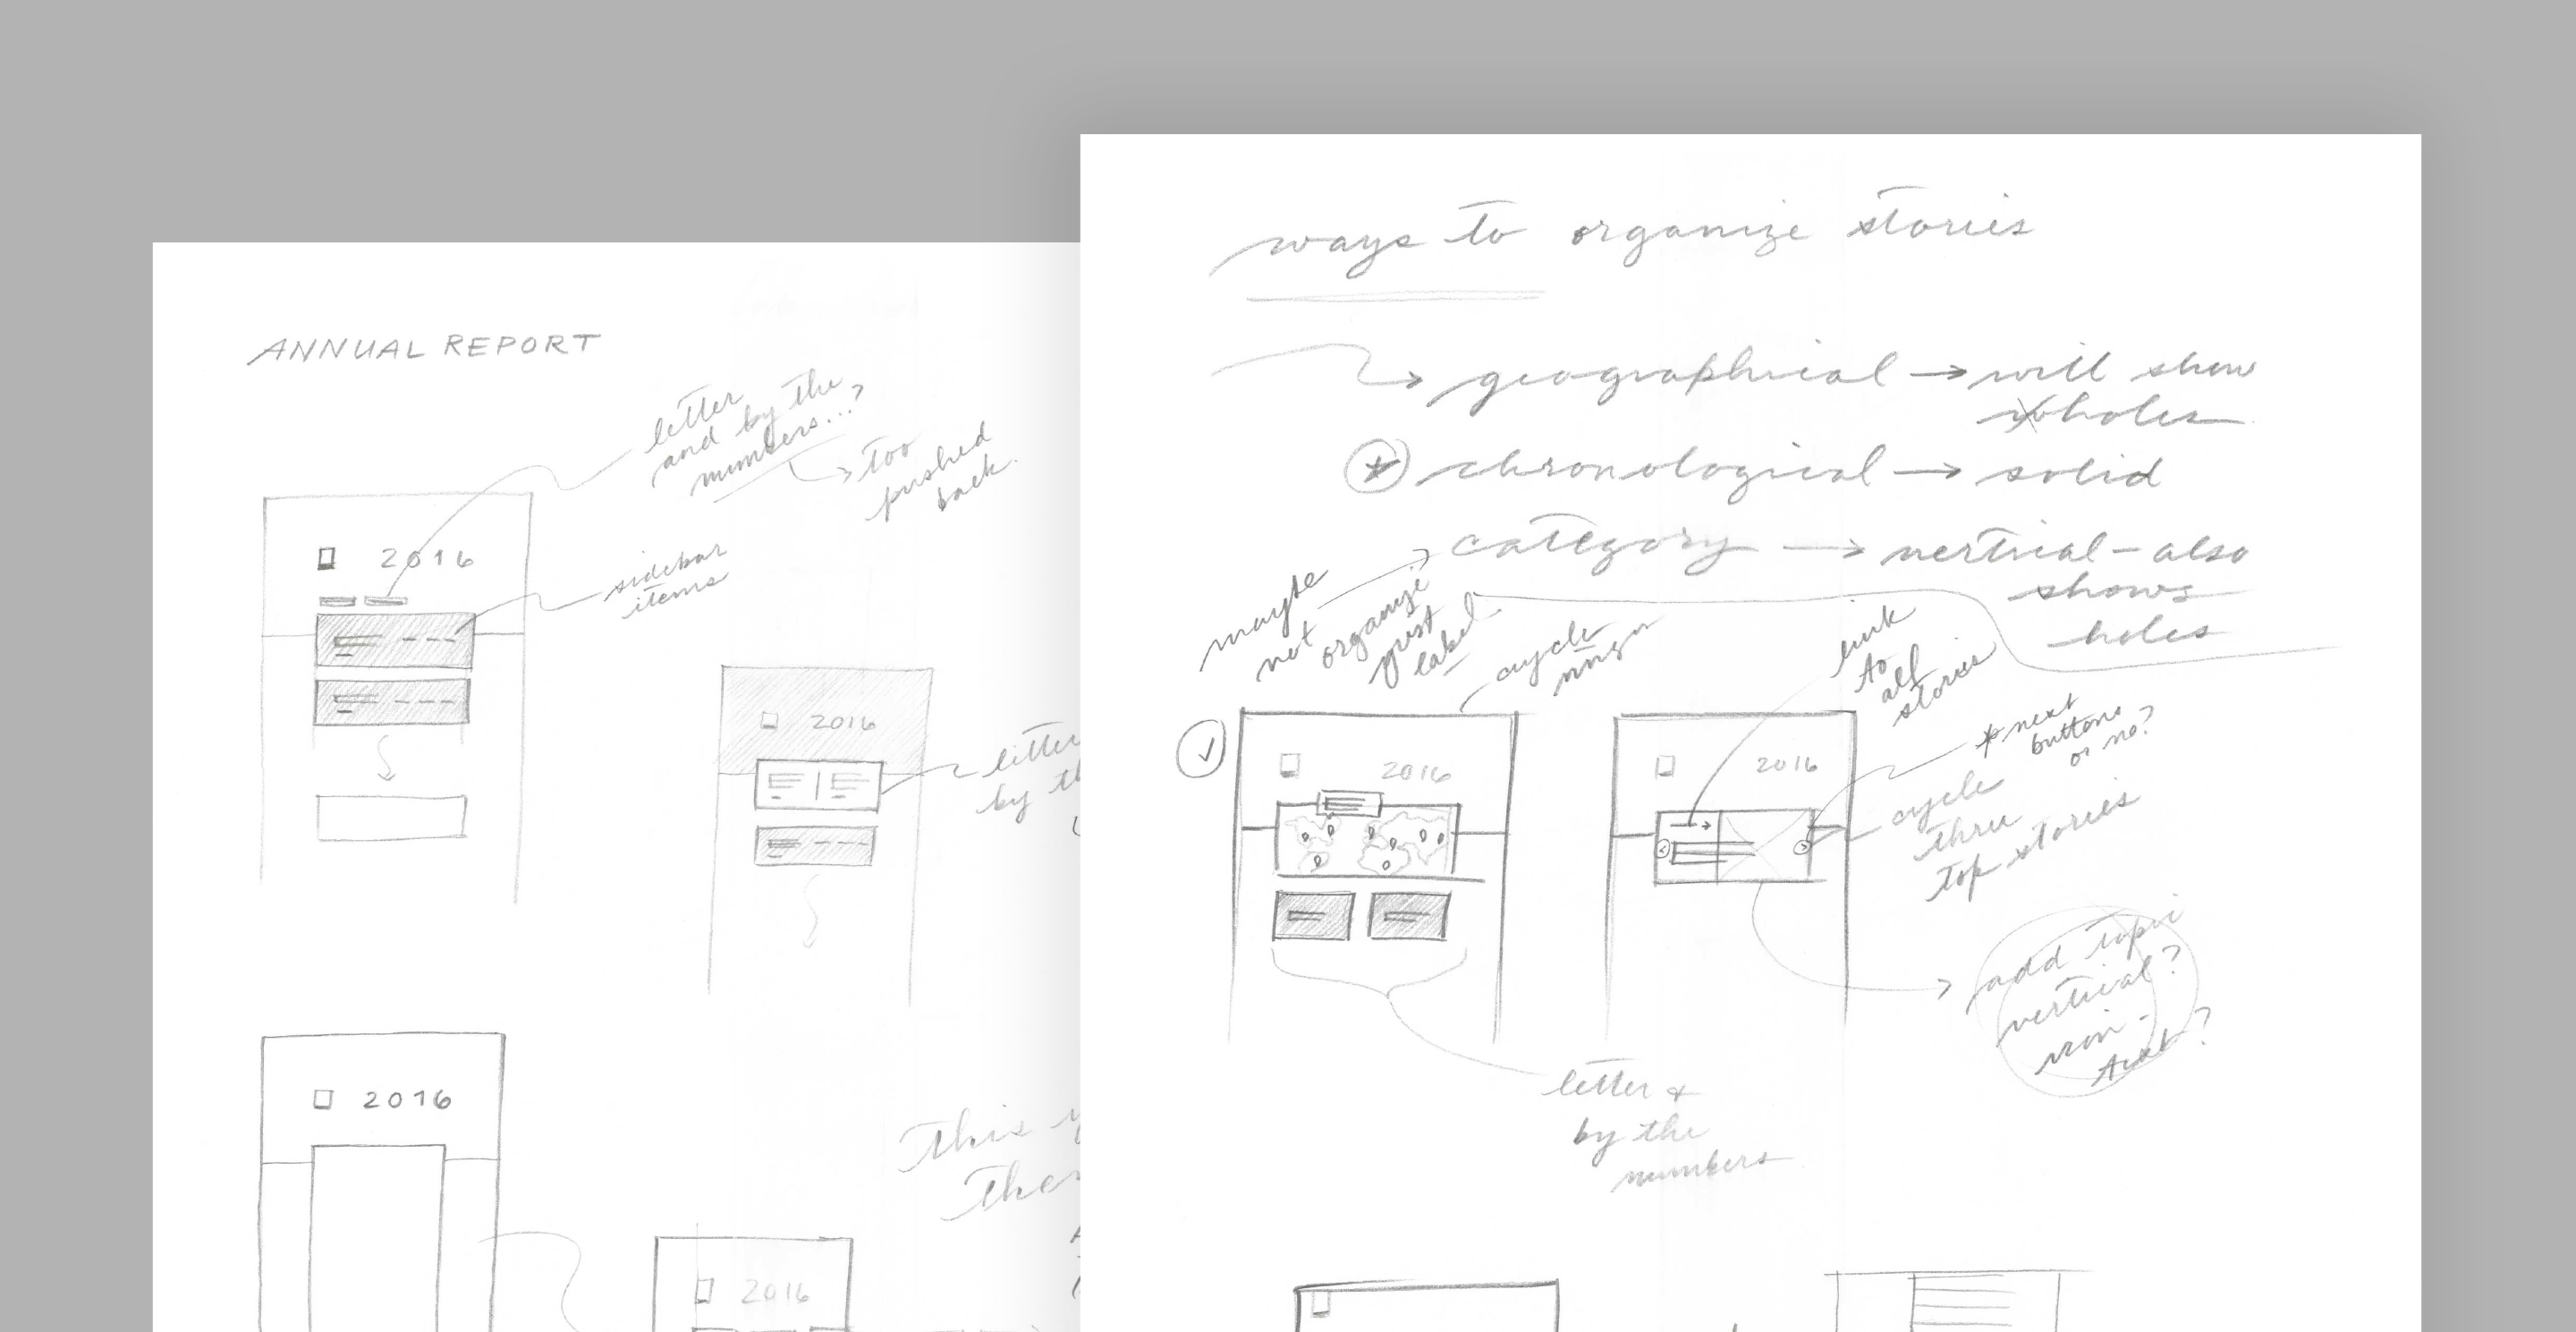 ANNUAL REPORT
letter
and by the
numbers...?
too
pushed
back.
2016
sidebar
items
2016
letter
by th
2016
This y
Ther
2016
ways to organize stories
geographical → will show
holes
chronological → solid
category → vertical - also
shows
holes
maybe
not organize
just
label
cycle
link
to
all
stories
* next
buttons
or no?
2016
2016
cycle
three
top stories
add topic
vertical?
text?
letter &
by the
numbers